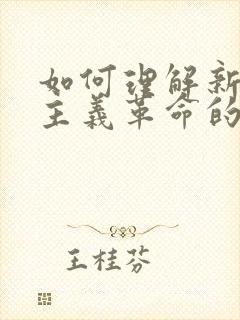 如何理解新
主义革命的
王桂芬